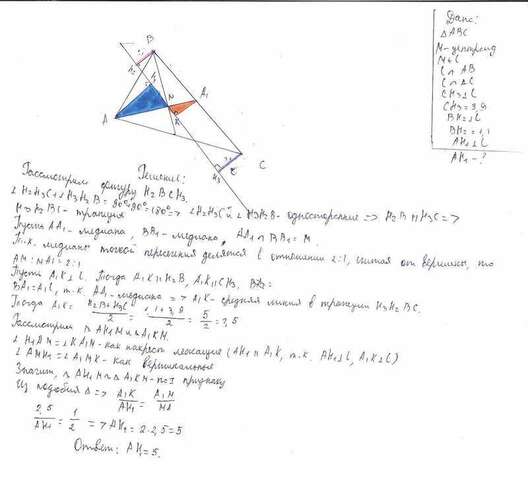 Дано:
△ABC
M - центроид
M ∈ l
l ∩ AB
l ∩ AC
CH3 ⊥ l
CH3 = 3,9
BH2 ⊥ l
BH2 = 1,1
AH1 ⊥ l
AH1 - ?
B
H2
H1
A1
M
A
K
C
H3
Решение:
Рассмотрим фигуру H2BCH3.
∠H2H3C + ∠H3H2B = 90° + 90° = 180° => ∠H2H3C и ∠H3H2B - односторонние => H2B || H3C =>
H3H2BC - трапеция
Пусть AA1 - медиана, BB1 - медиана, AA1 ∩ BB1 = M.
Т.к. медианы точкой пересечения делятся в отношении 2:1, считая от вершины, то
AM : MA1 = 2:1
Пусть A1K ⊥ l. Тогда A1K || H2B, A1K || CH3,
BA1 = A1C, т.к. AA1 - медиана => A1K - средняя линия в трапеции H3H2BC.
Тогда A1K = (H2B + H3C)/2 = (1,1 + 3,9)/2 = 5/2 = 2,5
Рассмотрим △AH1M и △A1KM.
∠H1AM = ∠KA1M - как накрест лежащие (AH1 || A1K, т.к. AH1 ⊥ l, A1K ⊥ l)
∠AMH1 = ∠A1MK - как вертикальные
Значит, △AH1M ~ △A1KM - по I признаку
Из подобия △ => A1K/AH1 = A1M/MA
2,5/AH1 = 1/2 => AH1 = 2·2,5 = 5
Ответ: AH1 = 5.